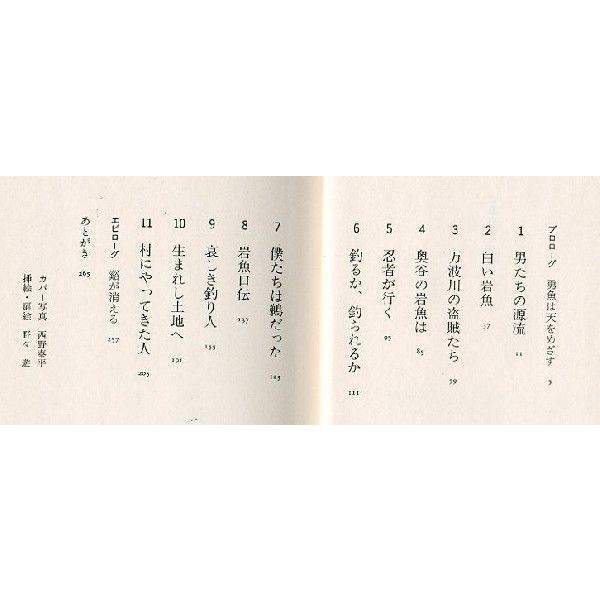 プロローグ 勇魚は天をめざす 5
1 男たちの源流 11
2 白い岩魚 37
3 万波川の盗賊たち 59
4 奥谷の岩魚は 85
5 忍者が行く 95
6 釣るか、釣られるか 111
7 僕たちは鵜だった 125
8 岩魚口伝 137
9 哀しき釣り人 155
10 生まれし土地へ 191
11 村にやってきた人 205
エピローグ 谿が消える 257
あとがき 265
カバー写真 西野泰平
挿絵・扉絵 野々 遊